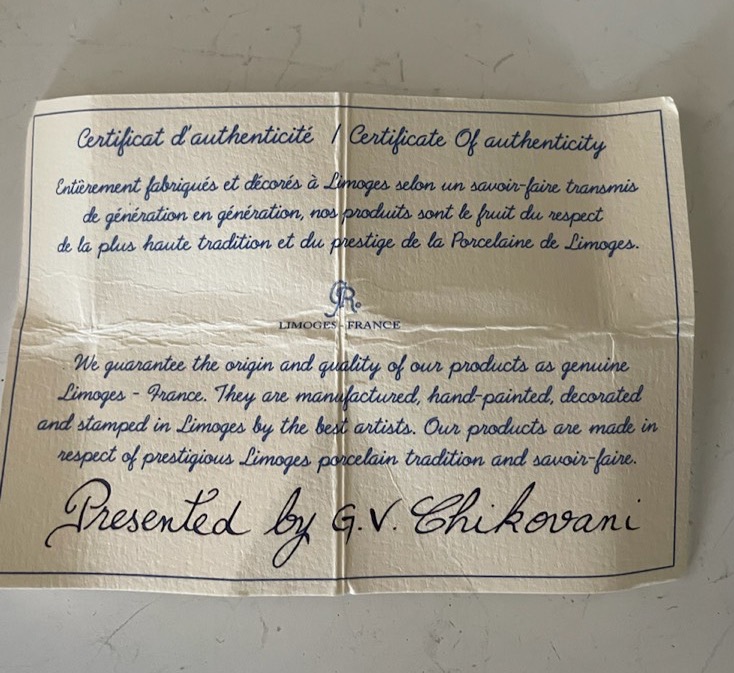 Certificat d'authenticité / Certificate Of authenticity
Entièrement fabriqués et décorés à Limoges selon un savoir-faire transmis
de génération en génération, nos produits sont le fruit du respect
de la plus haute tradition et du prestige de la Porcelaine de Limoges.
GR
LIMOGES - FRANCE
We guarantee the origin and quality of our products as genuine
Limoges - France. They are manufactured, hand-painted, decorated
and stamped in Limoges by the best artists. Our products are made in
respect of prestigious Limoges porcelain tradition and savoir-faire.
Presented by G.V. Chikovani